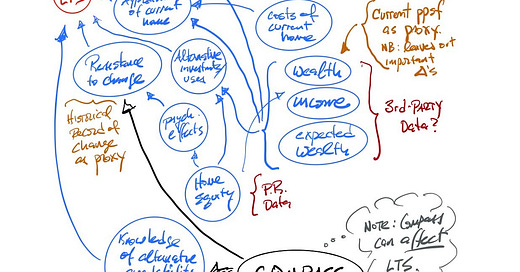 LTS
of current
home
costs of
current
home
Current ppsf
as proxy.
NB: leaves out
important
Δ's
Resistance
to change
Alternative
investments/
uses
wealth
income
expected
wealth
3rd-Party
Data?
Historical
Record of
change
as proxy
psych.
effects
Home
equity
P.R.
Data
Knowledge
of alternative
NOTE: Compass
can affect
LTS.
COMPASS